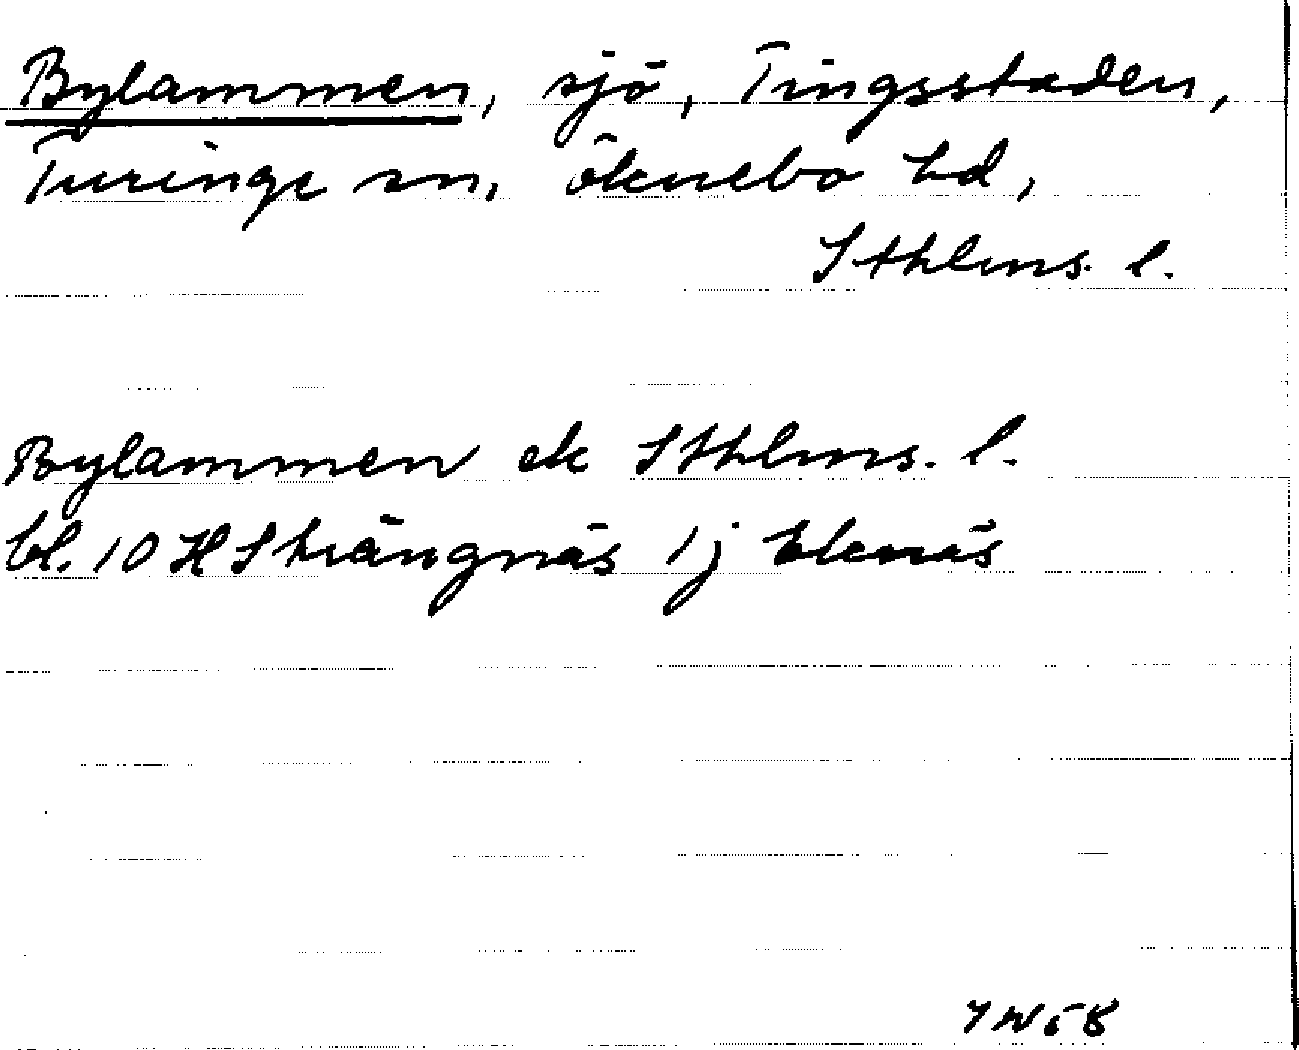 Bylammen, sjö, Tingsstaden,
Turinge sn, Öknebo hd,
Sthlms. l.
Bylammen ek Sthlms. l.
bl. 10 H Strängnäs 1 j Eknäs